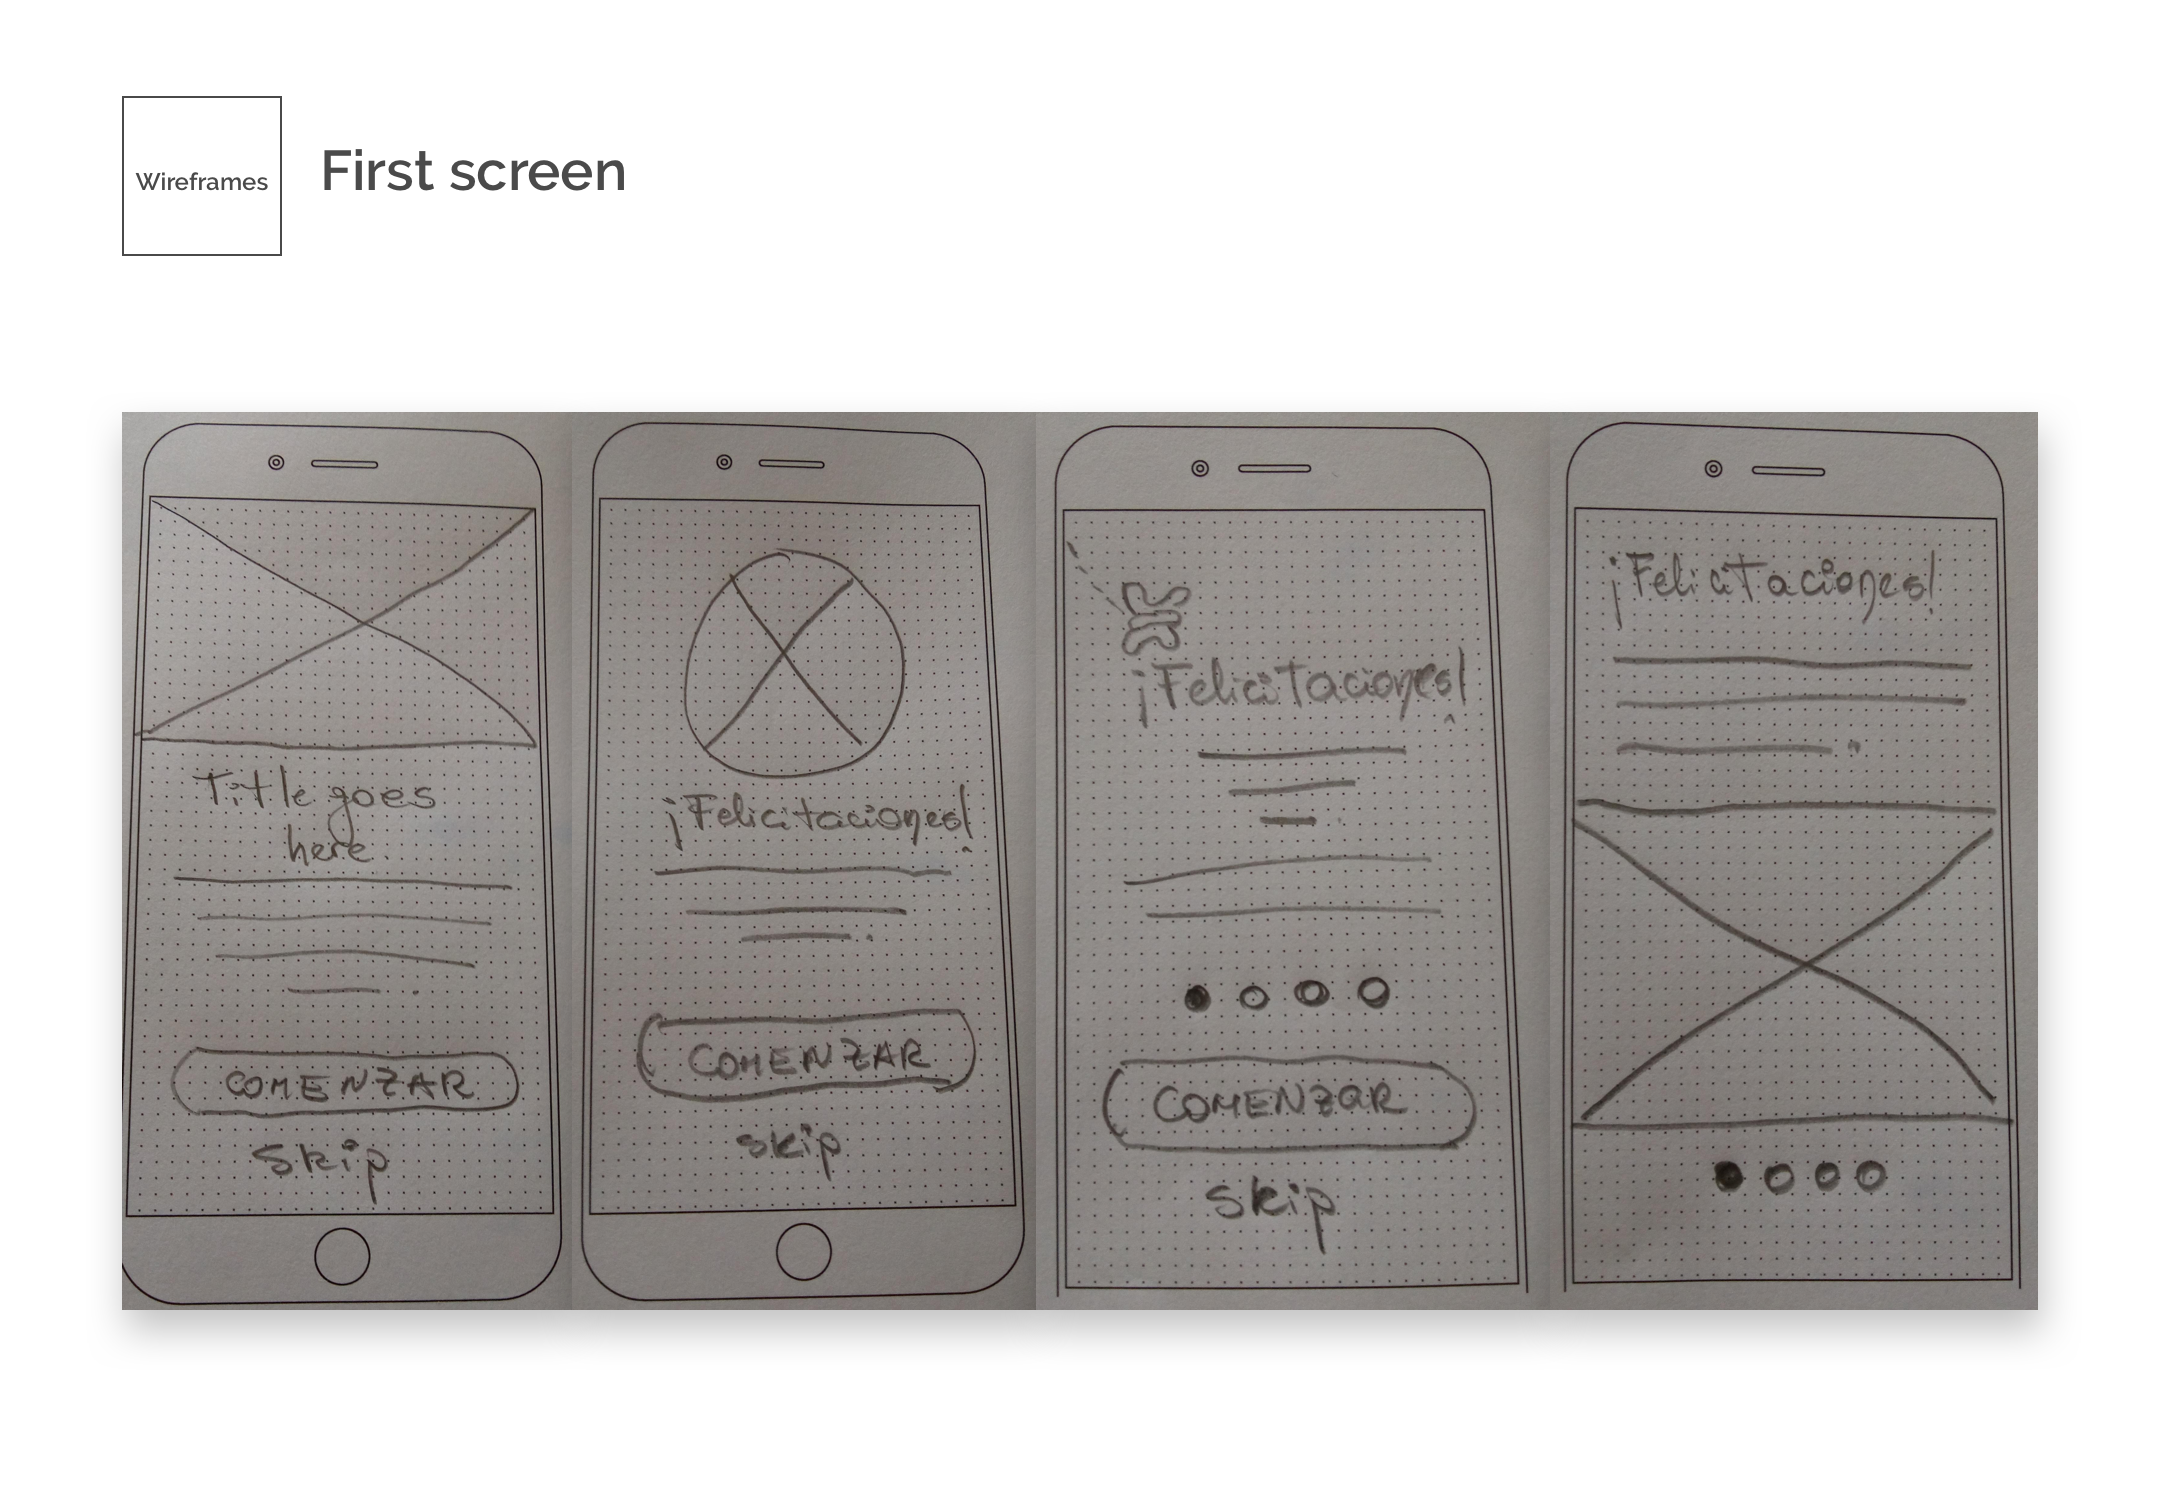 Wireframes
First screen
Title goes
here
COMENZAR
Skip
¡Felicitaciones!
COMENZAR
skip
¡Felicitaciones!
COMENZAR
skip
¡Felicitaciones!